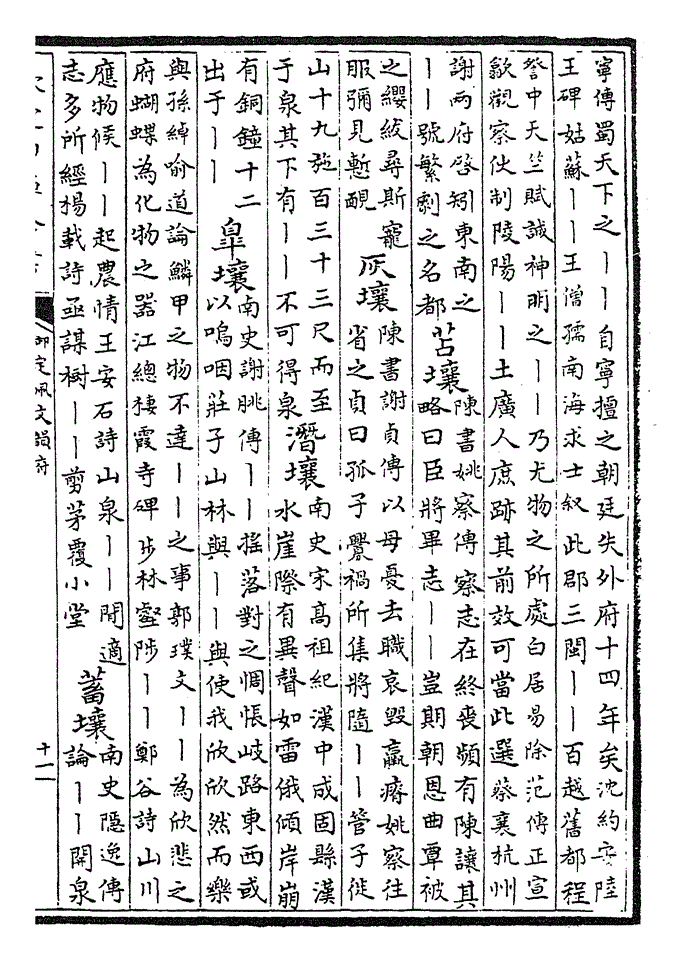 寧傳蜀天下之｜｜自寧擅之朝廷失外府十四年矣沈約安陸
王碑姑蘇｜｜王僧孺南海求士叙此郡三閩｜｜百越舊都程
詧中天竺賦誠神明之｜｜乃尤物之所處白居易除范傳正宣
歙觀察使制陵陽｜｜土廣人庶跡其前效可當此選蔡襄杭州
謝兩府啓矧東南之
｜｜號繁劇之名都
苫壤
陳書姚察傳察志在終喪頻有陳讓其
略曰臣將畢志｜｜豈期朝恩曲覃被
之纓紱尋斯寵
服彌見慙靦
灰壤
陳書謝貞傳以母憂去職哀毀羸瘠姚察往
省之貞曰孤子舋禍所集將隨｜｜管子徙
山十九施百三十三尺而至
于泉其下有｜｜不可得泉
潛壤
南史宋高祖紀漢中成固縣漢
水崖際有異聲如雷俄傾岸崩
有銅鐘十二
出于｜｜
皐壤
南史謝朓傳｜｜搖落對之惆悵岐路東西或
以嗚咽莊子山林與｜｜與使我欣欣然而樂
與孫綽喻道論鱗甲之物不達｜｜之事郭璞文｜｜為欣悲之
府蝴蝶為化物之器江總棲霞寺碑步林壑陟｜｜鄭谷詩山川
應物候｜｜起農情王安石詩山泉｜｜閒適
志多所經揚載詩亟謀樹｜｜剪茅覆小堂
蓄壤
南史隱逸傳
論｜｜開泉
御定佩文韻府
十一